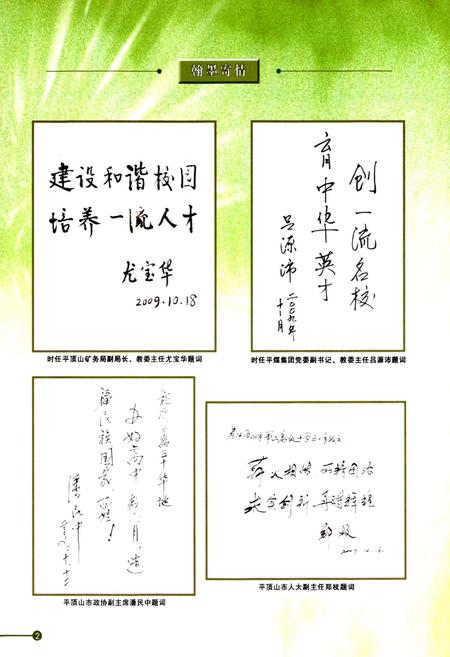 翰墨寄情
建设和谐校园
培养一流人才
尤宝华
2009.10.18
时任平顶山矿务局副局长、教委主任尤宝华题词
创一流名校
育中华英才
吕源沛
二〇〇九年
十月
时任平煤集团党委副书记、教委主任吕源沛题词
办好高中教育,造
福民族国家百姓!
潘民中
平顶山市政协副主席潘民中题词
薪火相传
求实创新 再谱辉煌
郑枝
2009.10.8.
平顶山市人大副主任郑枝题词
2